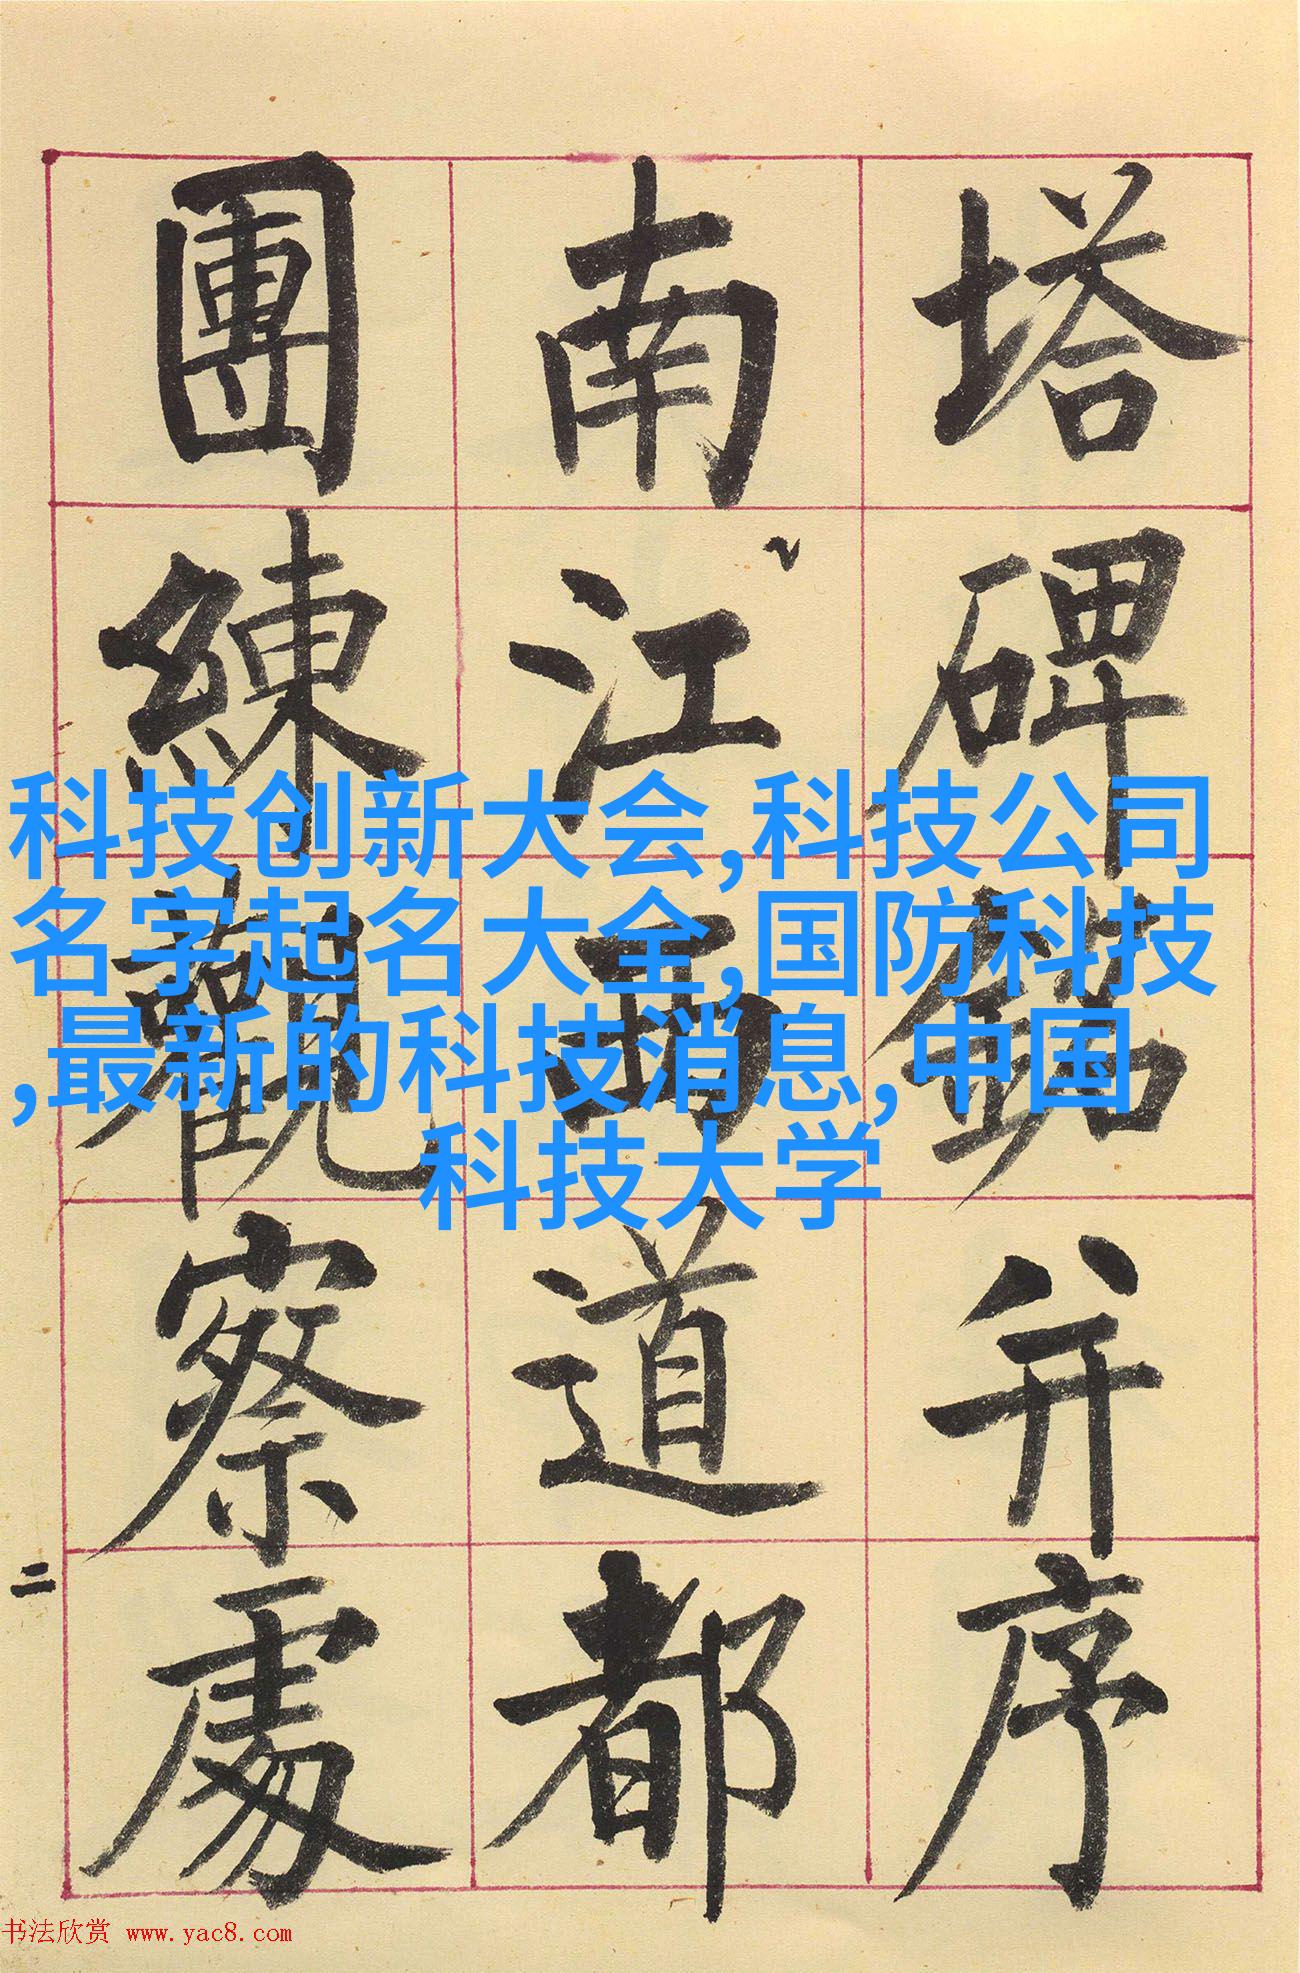 塔碑銘并序
南江西道都
團練觀察處
二
科技创新大会,科技公司
名字起名大全,国防科技
,最新的科技消息,中国
科技大学
书法欣赏 www.yac8.com